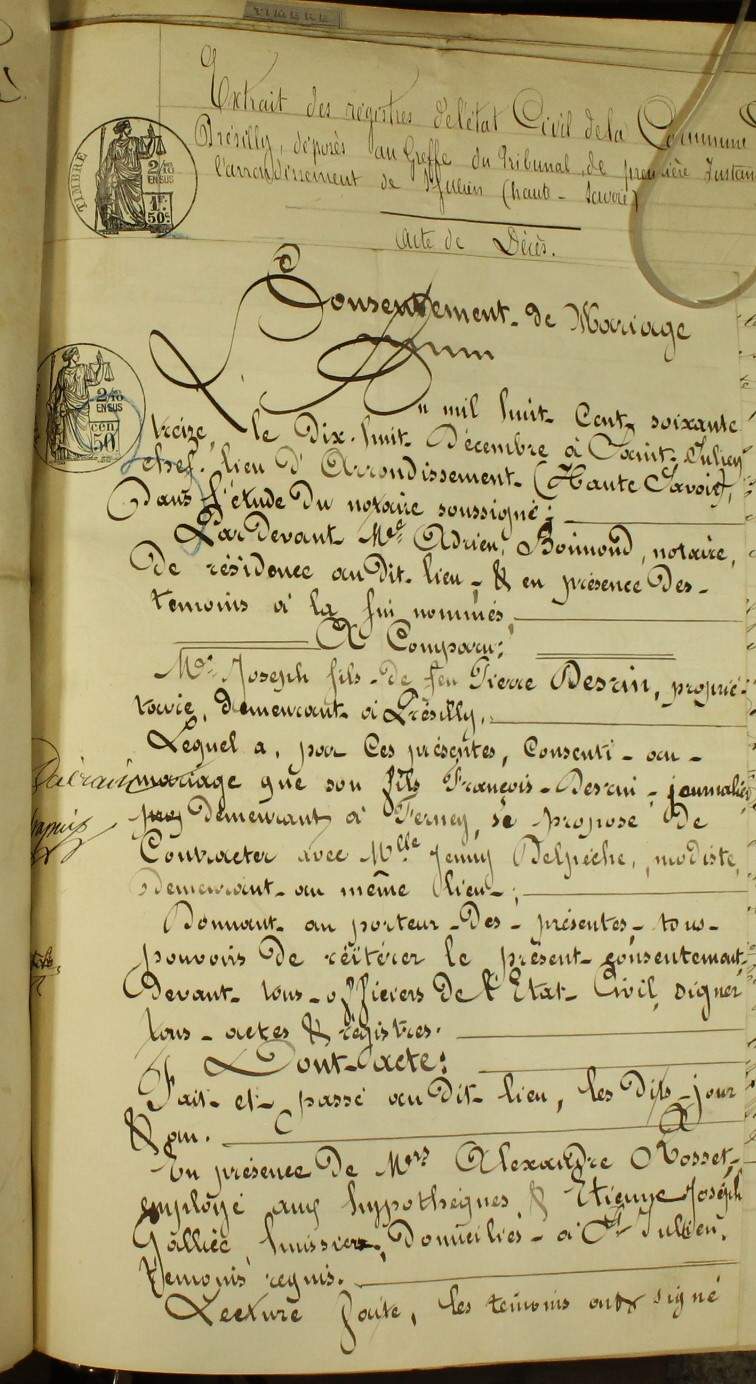 TIMBRE
Extrait des registres de l'état Civil de la Commune
Présilly, déposés au Greffe du Tribunal de première Instan
l'arrondissement de St Julien (haute-Savoie)
TIMBRE
2/10 EN SUS
1F. 50c
Acte de Décès.
Consentement de Mariage
2/10 EN SUS
cen 50
L'an mil huit cent soixante
treize, le Dix-huit Décembre à Saint-Julien
chef-lieu d'Arrondissement (Haute Savoie),
Dans l'étude du notaire soussigné;
Par Devant Me Adrien, Boimond, notaire,
De résidence au Dit lieu, & en présence Des
temoins à la fin nommés,
A Comparu:
Mr Joseph fils de feu Pierre Desrin, proprié-
taire, demeurant à Présilly.
Lequel a, par ces présentes, Consenti au
mariage que son fils François Desrin, journalier
Demeurant à Ferney, se propose De
Contracter avec Melle Jenny Delpèche, modiste,
Demeurant au même lieu;
Donnant au porteur Des présentes tous
pouvoirs De réitérer le présent consentement
Devant tous officiers De l'Etat Civil, signer
tous actes & régistres.
Dont acte:
Fait et passé au Dit lieu, les Dits jour
& an.
En présence De Mrs Alexandre Rosset,
employé aux hypothèques, & Etienne Joseph
Galliée, huissier, Domiciliés à St Julien,
temoins requis.
Lecture faite, les témoins ont signé